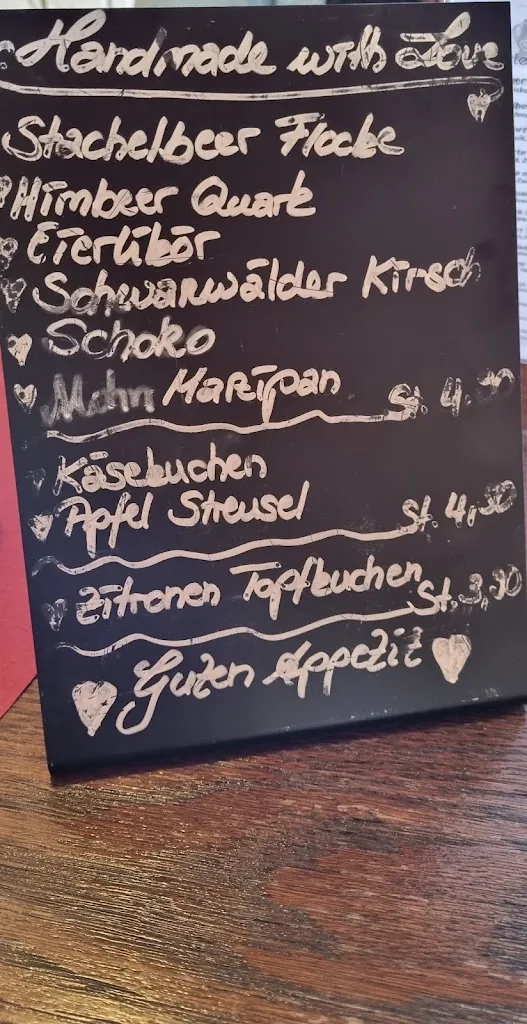 Handmade with Love
Stachelbeer Flocke
Himbeer Quark
Eierlikör
Schwarzwälder Kirsch
Schoko
Mohn Marzipan St. 4,90
Käsekuchen
Apfel Streusel St. 4,30
Zitronen Topfkuchen St. 3,90
Guten Appetit